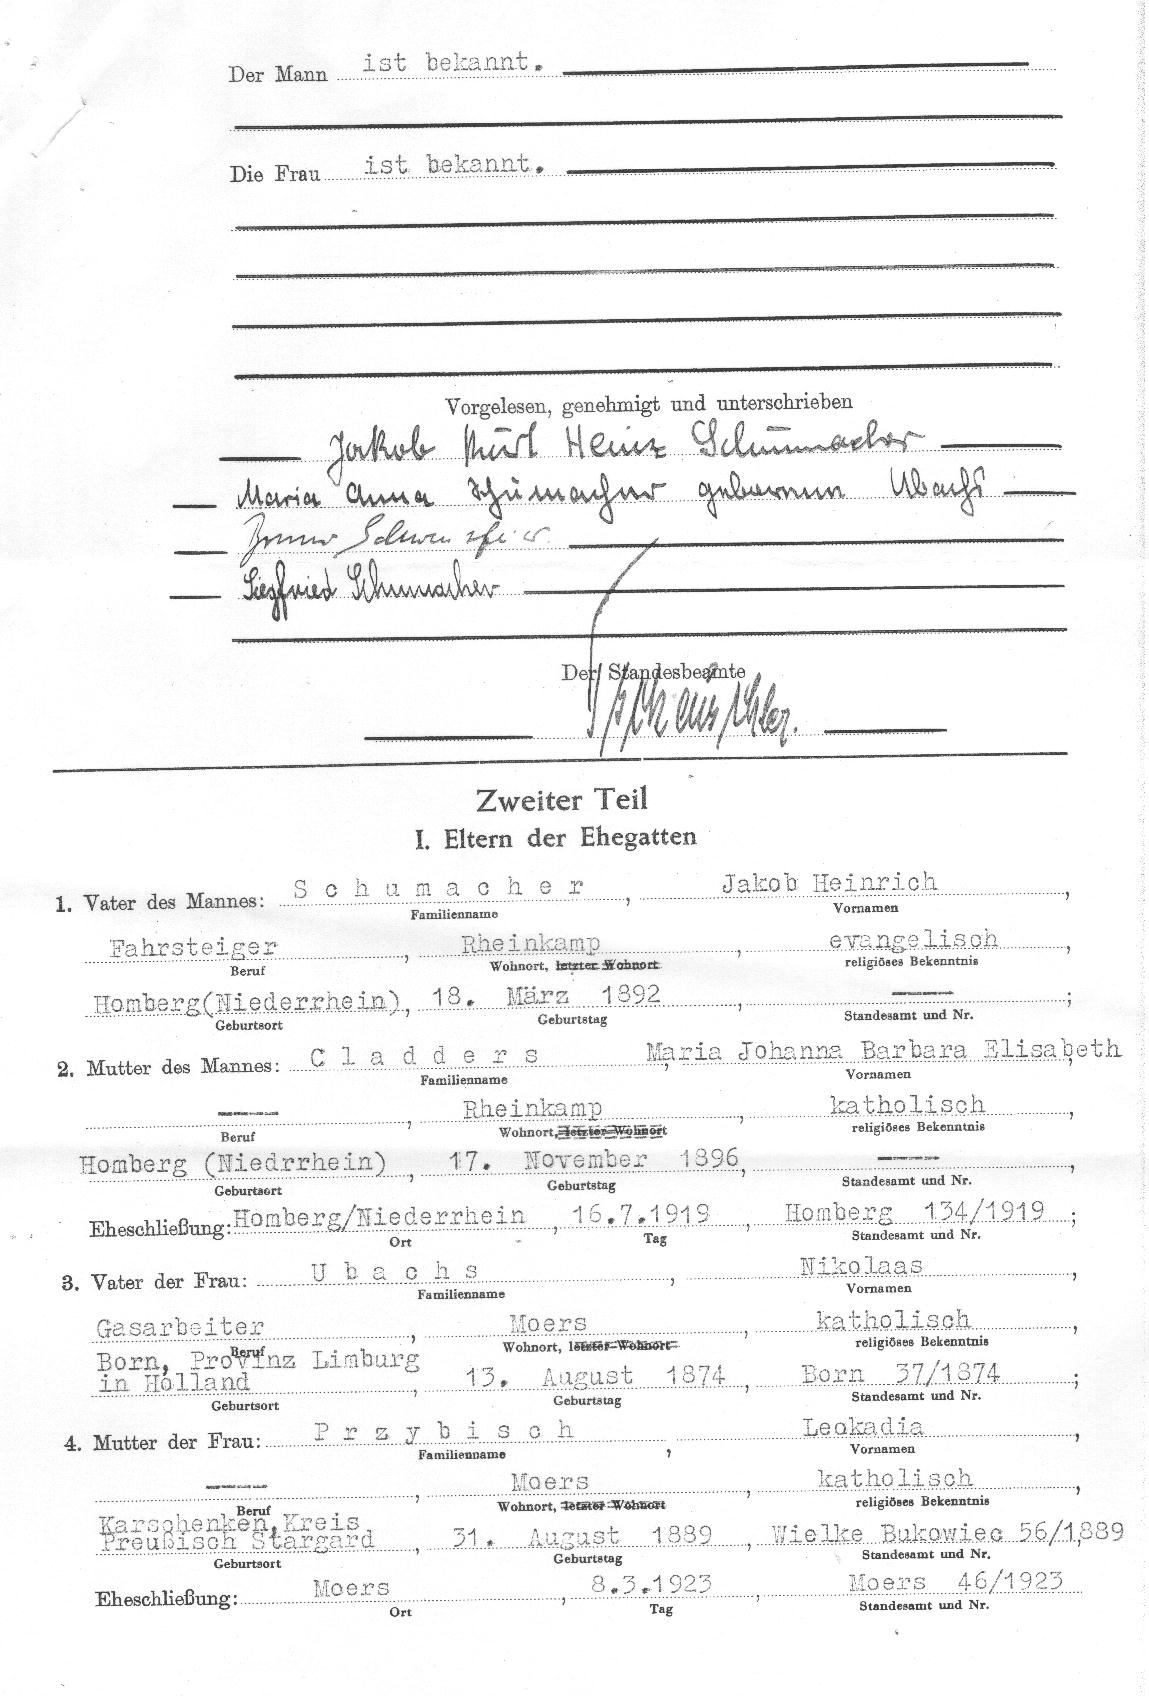 Der Mann ist bekannt.
Die Frau ist bekannt.
Vorgelesen, genehmigt und unterschrieben
Jakob Kurl Heinz Schumacher
Maria Anna Schumacher geborenen Ubachs
Siegfried Schumacher
Der Standesbeamte
Zweiter Teil
I. Eltern der Ehegatten
1. Vater des Mannes: Schumacher, Jakob Heinrich,
Familienname Vornamen
Fahrsteiger, Rheinkamp, evangelisch,
Beruf Wohnort, letzter Wohnort religiöses Bekenntnis
Homberg(Niederrhein), 18. März 1892, ;
Geburtsort Geburtstag Standesamt und Nr.
2. Mutter des Mannes: Cladders, Maria Johanna Barbara Elisabeth,
Familienname Vornamen
, Rheinkamp, katholisch,
Beruf Wohnort, letzter Wohnort religiöses Bekenntnis
Homberg (Niedrrhein), 17. November 1896, ,
Geburtsort Geburtstag Standesamt und Nr.
Eheschließung: Homberg/Niederrhein, 16.7.1919, Homberg 134/1919;
Ort Tag Standesamt und Nr.
3. Vater der Frau: Ubachs, Nikolaas,
Familienname Vornamen
Gasarbeiter, Moers, katholisch,
Beruf Wohnort, letzter Wohnort religiöses Bekenntnis
Born, Provinz Limburg
in Holland, 13. August 1874, Born 37/1874;
Geburtsort Geburtstag Standesamt und Nr.
4. Mutter der Frau: Przybisch, Leokadia,
Familienname Vornamen
, Moers, katholisch,
Beruf Wohnort, letzter Wohnort religiöses Bekenntnis
Karschenken, Kreis
Preußisch Stargard, 31. August 1889, Wielke Bukowiec 56/1889,
Geburtsort Geburtstag Standesamt und Nr.
Eheschließung: Moers, 8.3.1923, Moers 46/1923
Ort Tag Standesamt und Nr.